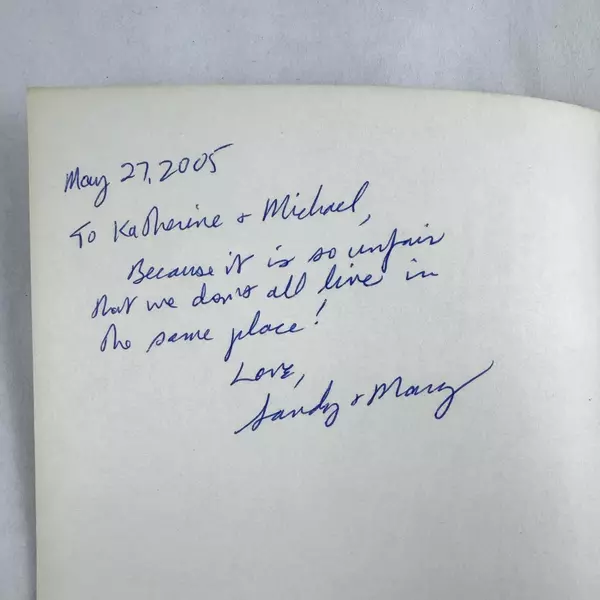 May 27, 2005
To Katherine + Michael,
Because it is so unfair
that we don't all live in
the same place!
Love,
Sandy + Mary